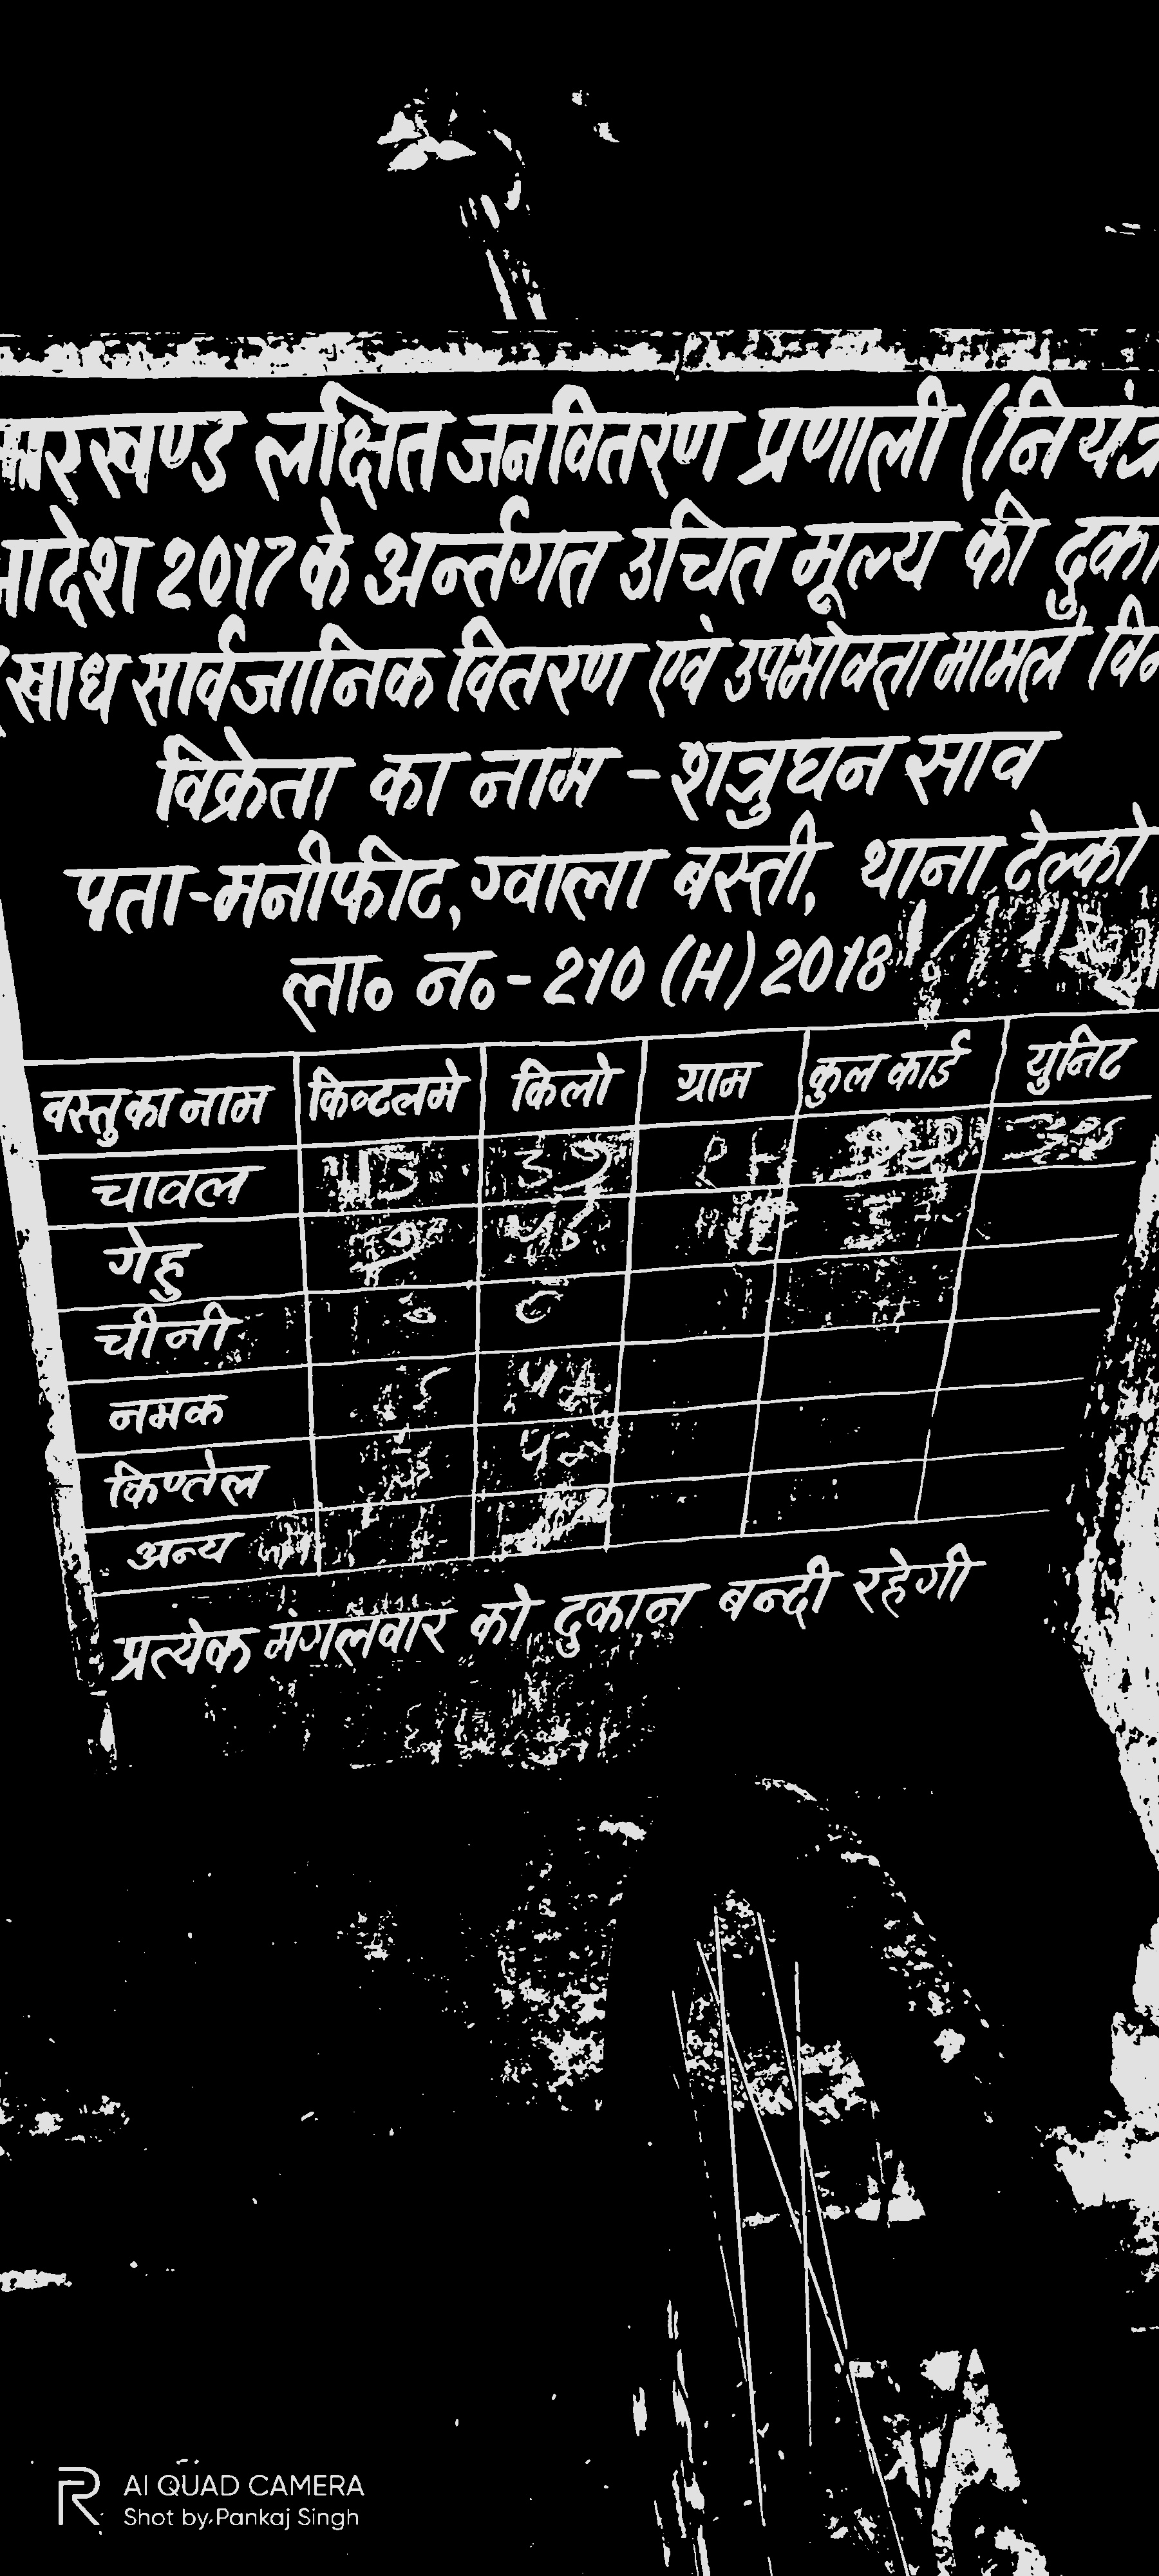 झारखण्ड लक्षित जनवितरण प्रणाली (नियंत्र
आदेश 2017 के अर्न्तगत उचित मूल्य की दुका
(खाध सार्वजानिक वितरण एवं उपभोक्ता मामले वि
विक्रेता का नाम - शत्रुघन साव
पता-मनीफीट, ग्वाला बस्ती, थाना टेल्को
ला० न०-210 (H) 2018
वस्तु का नाम किव्टलमे किलो ग्राम कुल कार्ड युनिट
चावल
गेहु
चीनी
नमक
किण्तेल
अन्य
प्रत्येक मंगलवार को दुकान बन्दी रहेगी
AI QUAD CAMERA
Shot by Pankaj Singh